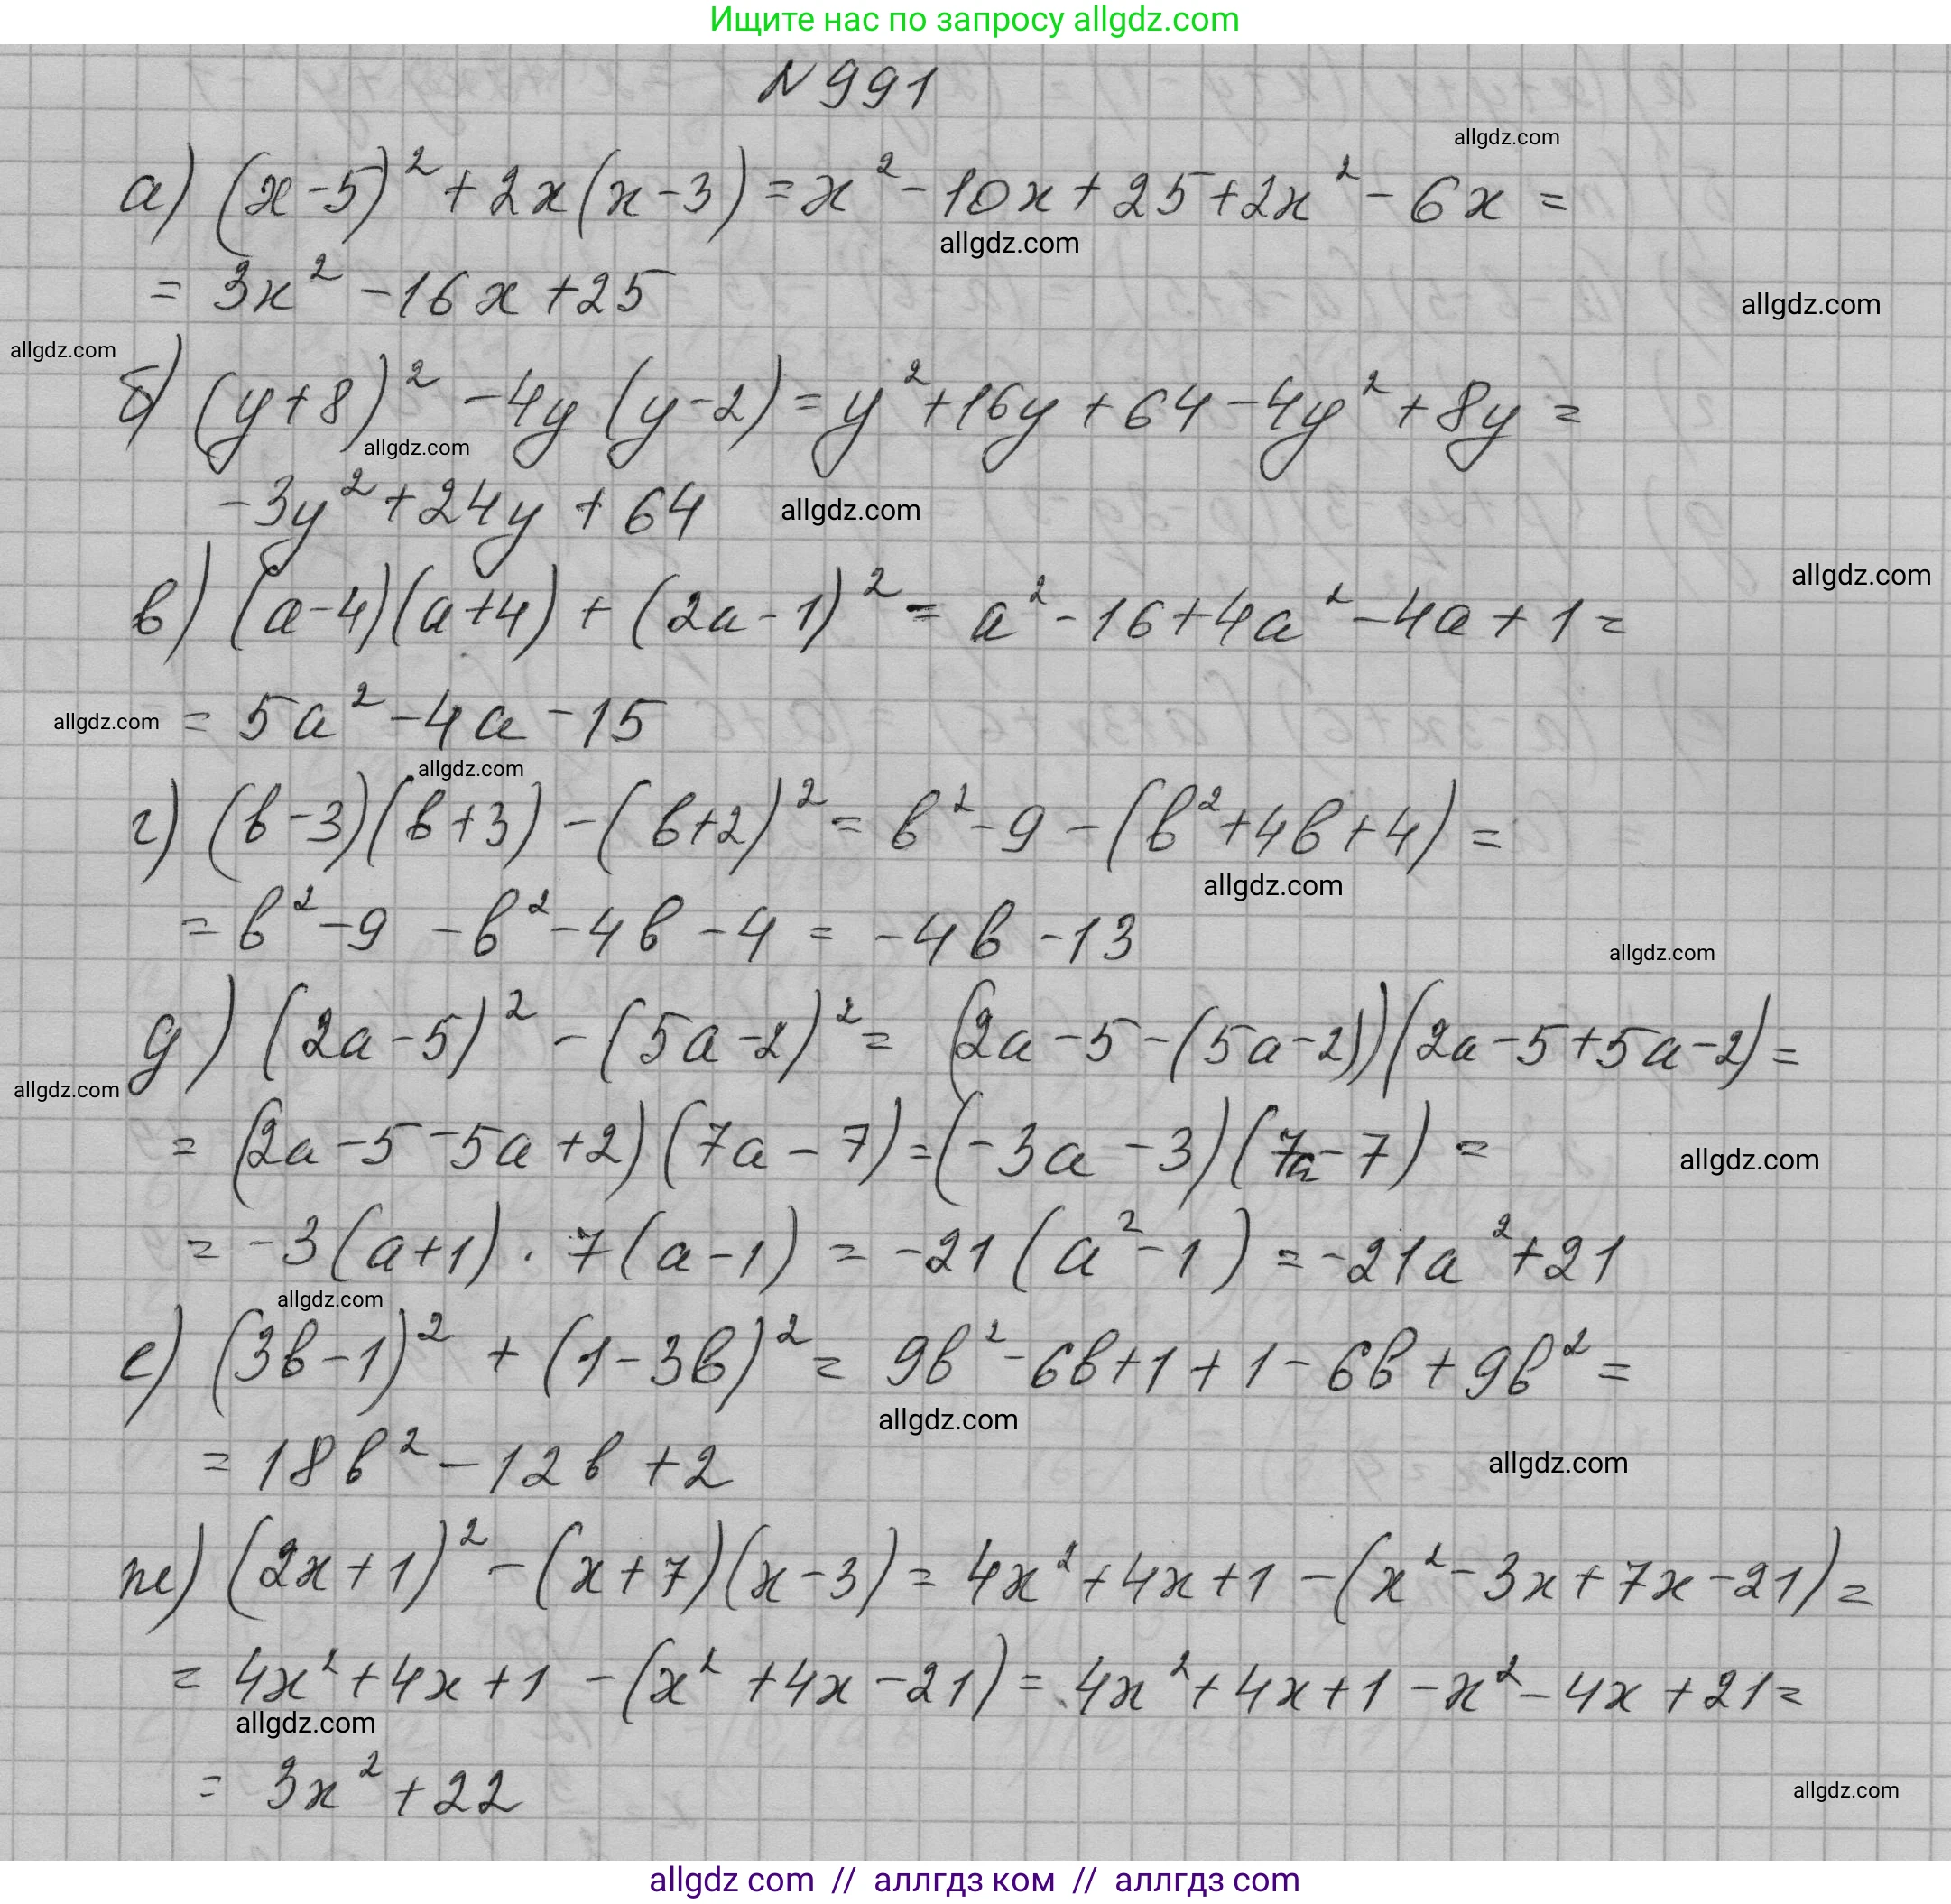 Ищите нас по запросу allgdz.com
N 991
allgdz.com
а) (x-5)² + 2x(x-3) = x² - 10x + 25 + 2x² - 6x =
allgdz.com
= 3x² - 16x + 25
allgdz.com
allgdz.com
б) (y+8)² - 4y(y-2) = y² + 16y + 64 - 4y² + 8y =
allgdz.com
-3y² + 24y + 64
allgdz.com
allgdz.com
в) (a-4)(a+4) + (2a-1)² = a² - 16 + 4a² - 4a + 1 =
allgdz.com
= 5a² - 4a - 15
allgdz.com
г) (b-3)(b+3) - (b+2)² = b² - 9 - (b² + 4b + 4) =
allgdz.com
= b² - 9 - b² - 4b - 4 = -4b - 13
allgdz.com
д) (2a-5)² - (5a-2)² = (2a-5-(5a-2))(2a-5+5a-2) =
allgdz.com
= (2a-5-5a+2)(7a-7) = (-3a-3)(7a-7) =
allgdz.com
= -3(a+1)·7(a-1) = -21(a²-1) = -21a² + 21
allgdz.com
е) (3b-1)² + (1-3b)² = 9b² - 6b + 1 + 1 - 6b + 9b² =
allgdz.com
= 18b² - 12b + 2
allgdz.com
ж) (2x+1)² - (x+7)(x-3) = 4x² + 4x + 1 - (x² - 3x + 7x - 21) =
= 4x² + 4x + 1 - (x² + 4x - 21) = 4x² + 4x + 1 - x² - 4x + 21 =
allgdz.com
= 3x² + 22
allgdz.com
allgdz com // аллгдз ком // аллгдз com